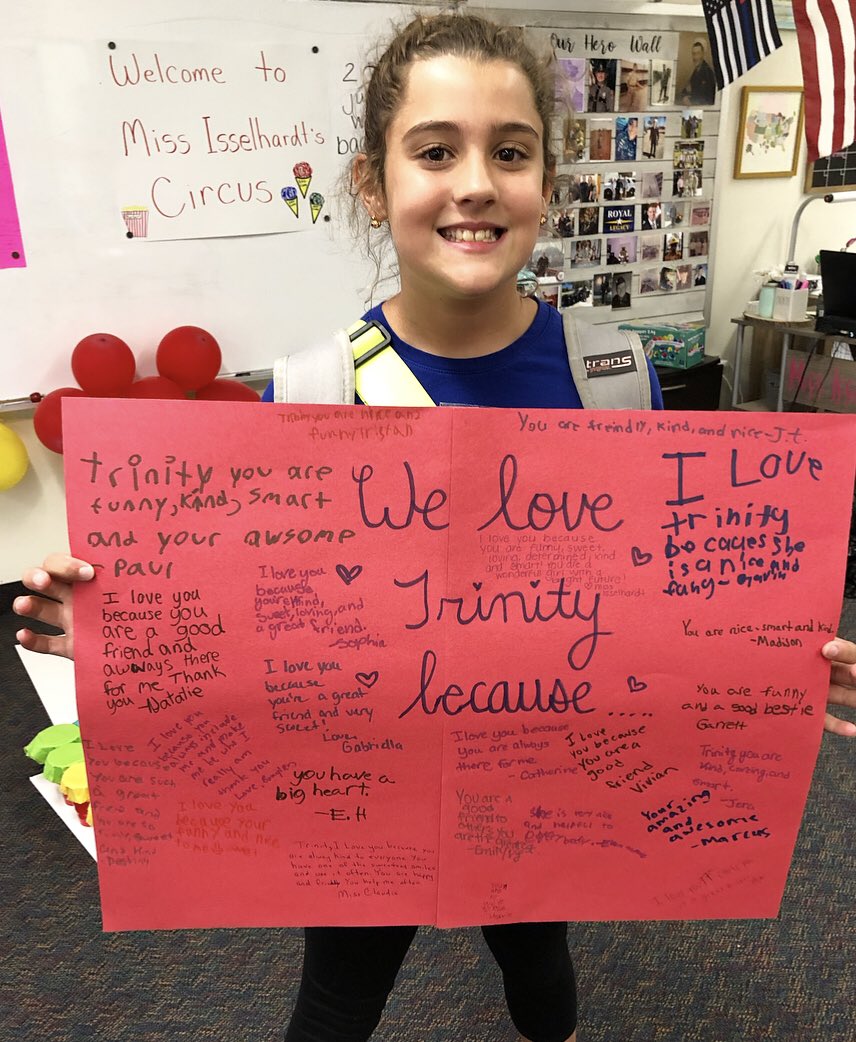 Welcome to
Miss Isselhardt's
Circus
Our Hero Wall
ROYAL
LEGACY
trans
We love
Trinity
because.....
funny Tristan
You are freindly, kind, and nice-J.t.
trinity you are
funny, kind, smart
and your awsome
- Paul
I Love
trinity
becauges she
is a nice and
I love you because
you are funny, sweet,
loving, determined, kind
and smart! You are a
wonderful girl with a
bright future!
Miss
Isselhardt
I love you
because
you're kind,
sweet, loving, and
a great friend.
-Sophia
I love you
because you
are a good
friend and
always there
for me Thank
you -Natalie
You are nice, smart and kind.
-Madison
I love you
because
you're a great
friend and very
sweet!
Love,
Gabriella
You are funny
and a good best'ie
Garrett
I love you
because you
always include
me and make
me be who I
really am
thank you
I Love
You because
You are such
a great
friend and
and kind
Destiny
I love you because
you are always
there for me
- Catherine
I love
you because
you are a
good
friend
Vivian
Trinity you are
kind, caring, and
smart.
-Jera
you have a
big heart.
-E.H
I love you
because your
funny and nice
You are a
good
friend to
others you
are the
-Emily
she is very nice
and helpful to
Your
amazing
and
awesome
-Marcus
Trinity, I love you because you
are always kind to everyone. You
have one of the sweetest smiles
and use it often. You are happy
and friendly. You help me often
Miss Claudia